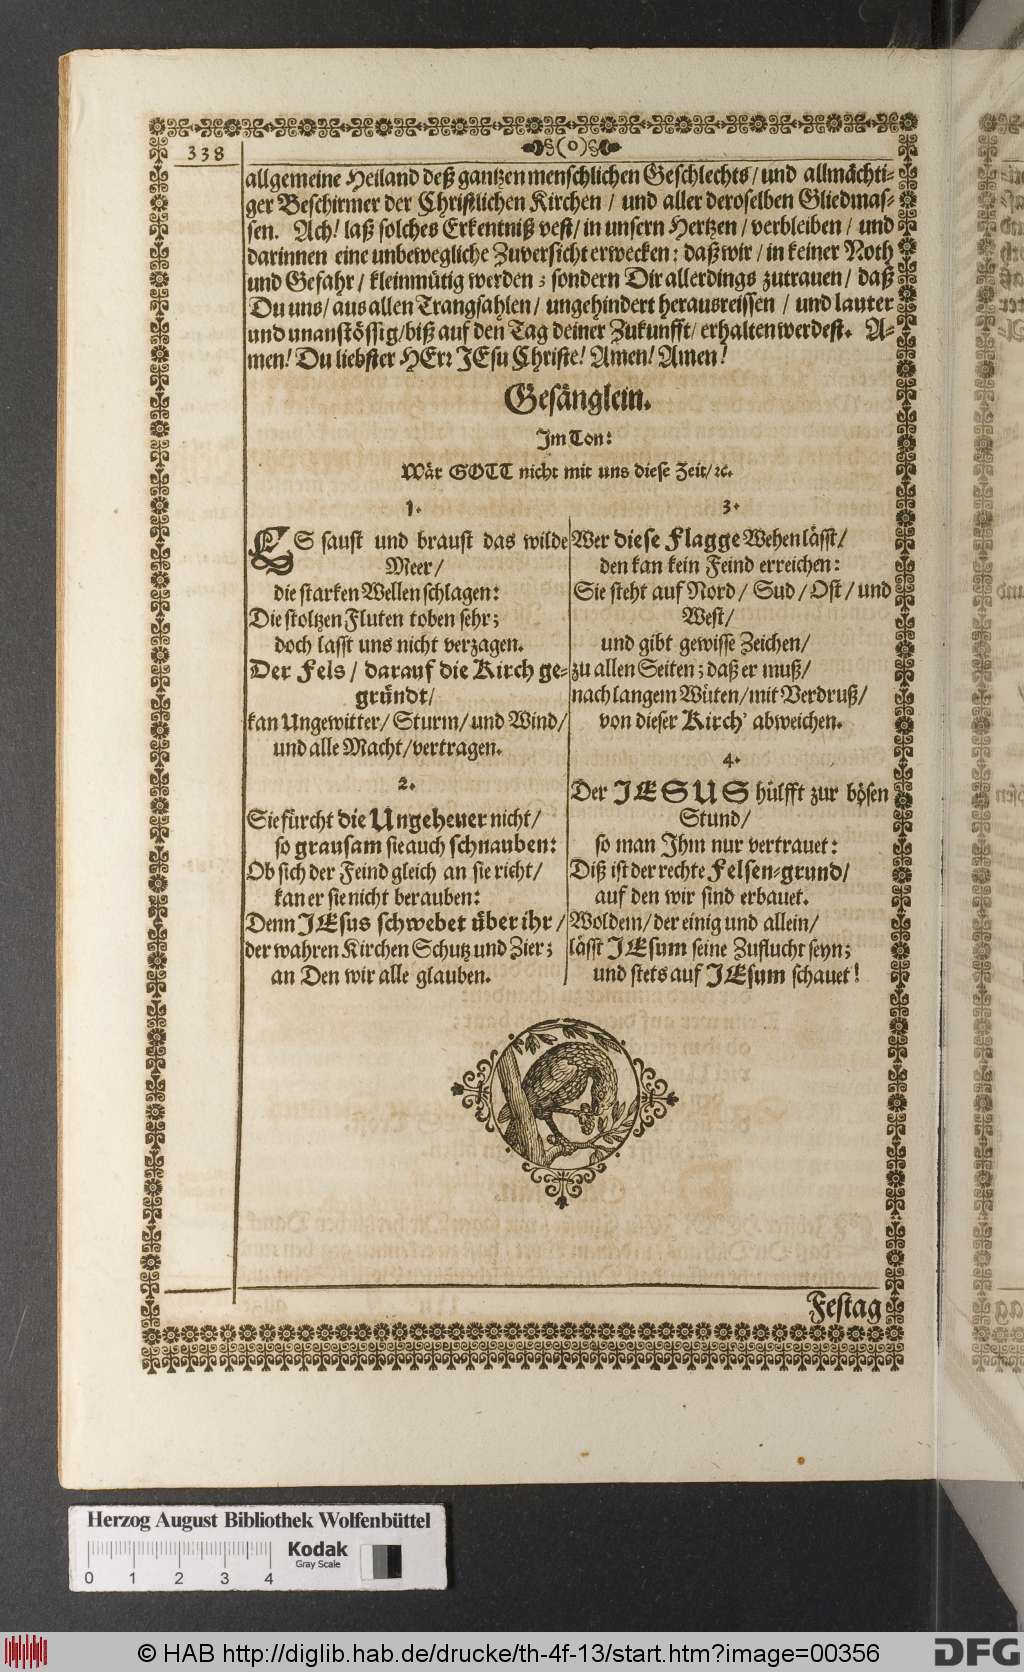 338
(o)
allgemeine Heiland deß gantzen menschlichen Geschlechts / und allmächti-
ger Beschirmer der Christlichen Kirchen / und aller deroselben Gliedmas-
sen. Ach! laß solches Erkentniß vest / in unsern Hertzen / verbleiben / und
darinnen eine unbewegliche Zuversicht erwecken: daß wir / in keiner Noth
und Gefahr / kleinmütig werden; sondern Dir allerdings zutrauen / daß
Du uns / aus allen Trangsahlen / ungehindert herausreissen / und lauter
und unanstössig / biß auf den Tag deiner Zukunfft / erhalten werdest. A-
men! Du liebster HErr JEsu Christe! Amen! Amen!
Gesänglein.
Im Ton:
Wär GOTT nicht mit uns diese Zeit / ꝛc.
1.
ES saust und braust das wilde
Meer /
die starken Wellen schlagen:
Die stoltzen Fluten toben sehr;
doch lasst uns nicht verzagen.
Der Fels / darauf die Kirch ge-
gründt /
kan Ungewitter / Sturm / und Wind /
und alle Macht / vertragen.
2.
Sie fürcht die Ungeheuer nicht /
so grausam sie auch schnauben:
Ob sich der Feind gleich an sie richt /
kan er sie nicht berauben:
Denn JEsus schwebet über ihr /
der wahren Kirchen Schutz und Zier;
an Den wir alle glauben.
3.
Wer diese Flagge Wehen lässt /
den kan kein Feind erreichen:
Sie steht auf Nord / Sud / Ost / und
West /
und gibt gewisse Zeichen /
zu allen Seiten; daß er muß /
nach langem Wüten / mit Verdruß /
von dieser Kirch' abweichen.
4.
Der JESUS hülfft zur bösen
Stund /
so man Ihm nur vertrauet:
Diß ist der rechte Felsen-grund /
auf den wir sind erbauet.
Wol dem / der einig und allein /
lässt JEsum seine Zuflucht seyn;
und stets auf JEsum schauet!
Festag
Herzog August Bibliothek Wolfenbüttel
Kodak
Gray Scale
0 1 2 3 4
© HAB http://diglib.hab.de/drucke/th-4f-13/start.htm?image=00356
DFG